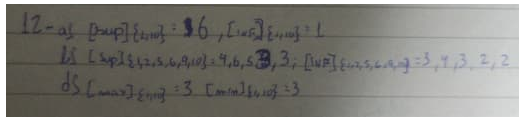 12-a) [sup]{1,10} = 6, [inf]{1,10} = 1
b) [sup]{1,2,5,6,9,10} = 4,6,5, 3, [inf]{1,2,5,6,9,10} = 3,4,3,2,2
d) [max]{1,10} = 3 [min]{1,10} = 3